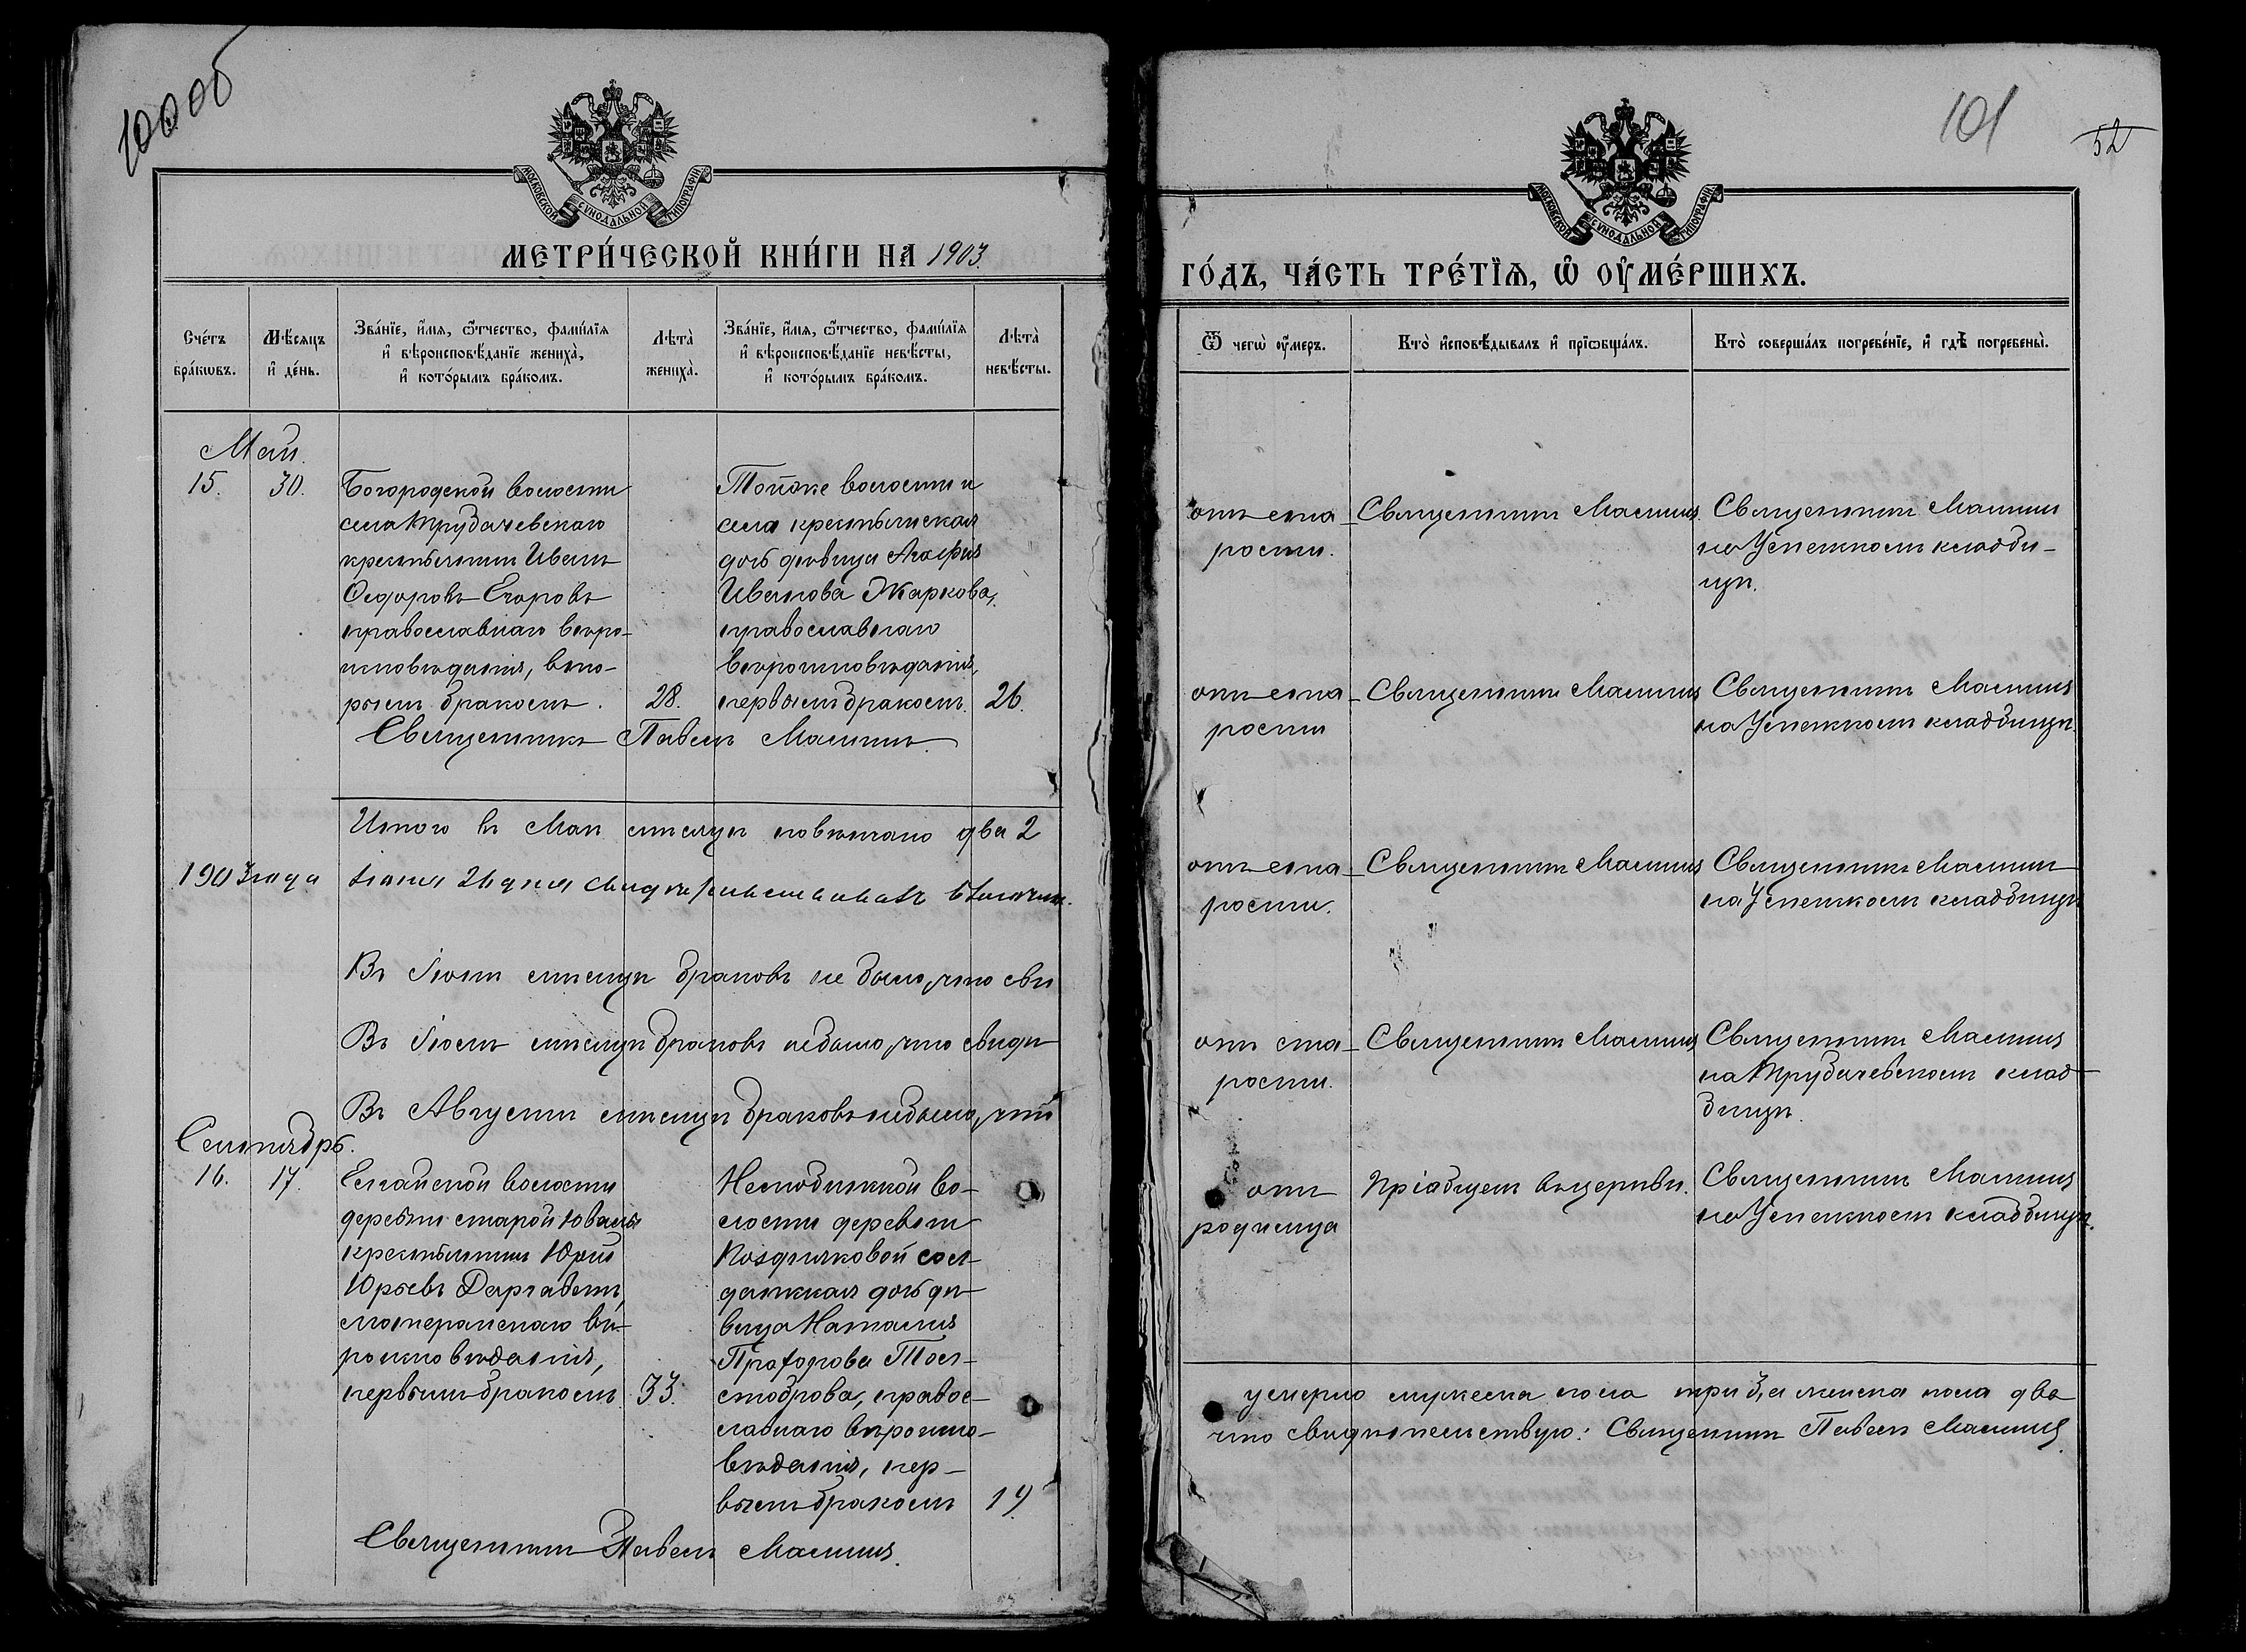 100 об
МОСКОВСКОЙ СѴНОДАЛЬНОЙ ТИПОГРАФІИ
МЕТРИ́ЧЕСКОЙ КНИ́ГИ НА 1903.
Сче́тъ бра́кѡвъ.
Мѣ́сяцъ и҆ де́нь.
Зва́нїе, и҆́мя, ѻ҆́тчество, фами́лїѧ
и҆ вѣроисповѣ́данїе жениха̀,
и҆ кото́рымъ бра́комъ.
Лѣта̀ жениха̀.
Зва́нїе, и҆́мя, ѻ҆́тчество, фами́лїѧ
и҆ вѣроисповѣ́данїе невѣ́сты,
и҆ кото́рымъ бра́комъ.
Лѣта̀ невѣ́сты.
Май.
15. 30.
Богородской волости
села Трубачевскаго
крестьянинъ Иванъ
Ѳедоровъ Егоровъ
православнаго вѣро-
исповѣданія, вто-
рымъ бракомъ.
28.
Тойже волости и
села крестьянская
дочь дѣвица Агафія
Иванова Жаркова,
православнаго
вѣроисповѣданія,
первымъ бракомъ.
26.
Священникъ Павелъ Малининъ.
Итого въ Маѣ мѣсяцѣ повѣнчано два 2
1903 года
Въ Іюнѣ мѣсяцѣ браковъ не было, что сви
Въ Іюлѣ мѣсяцѣ браковъ не было, что свидѣ
Въ Августѣ мѣсяцѣ браковъ не было, что
Сентябрь.
16. 17.
волости
деревни старой Ювалы
крестьянинъ Юрій
Юрьевъ
лютеранскаго вѣ-
роисповѣданія,
первымъ бракомъ
33.
во-
лости деревни
Поздняковой сол-
датская дочь дѣ-
вица Наталія
православнаго вѣроиспо-
вѣданія, пер-
вымъ бракомъ
19.
Священникъ Павелъ Малининъ.
101
52
МОСКОВСКОЙ СѴНОДАЛЬНОЙ ТИПОГРАФІИ
ГО́ДЪ, ЧА́СТЬ ТРЕ́ТЇѦ, Ѡ҆ ОУ҆МЕ́РШИХЪ.
Ѿ чегѡ̀ оу҆́меръ.
Кто̀ и҆сповѣ́дывалъ и҆ прїѡбща́лъ.
Кто̀ соверша́лъ погребе́нїе, и҆ гдѣ̀ погребены̀.
отъ ста-
рости.
Священникъ Малининъ.
Священникъ Малининъ
на Успенскомъ кладби-
щѣ.
отъ ста-
рости
Священникъ Малининъ
Священникъ Малининъ
на Успенскомъ кладбищѣ.
отъ ста-
рости.
Священникъ Малининъ
Священникъ Малининъ
на Успенскомъ кладбищѣ
отъ ста-
рости.
Священникъ Малининъ
Священникъ Малининъ
на Трубачевскомъ клад-
бищѣ.
отъ
родимца
Пріобщенъ въ церкви.
Священникъ Малининъ
на Успенскомъ кладбищѣ.
умерло мужеска пола три 3, а женска пола два
что свидѣтельствую: Священникъ Павелъ Малининъ